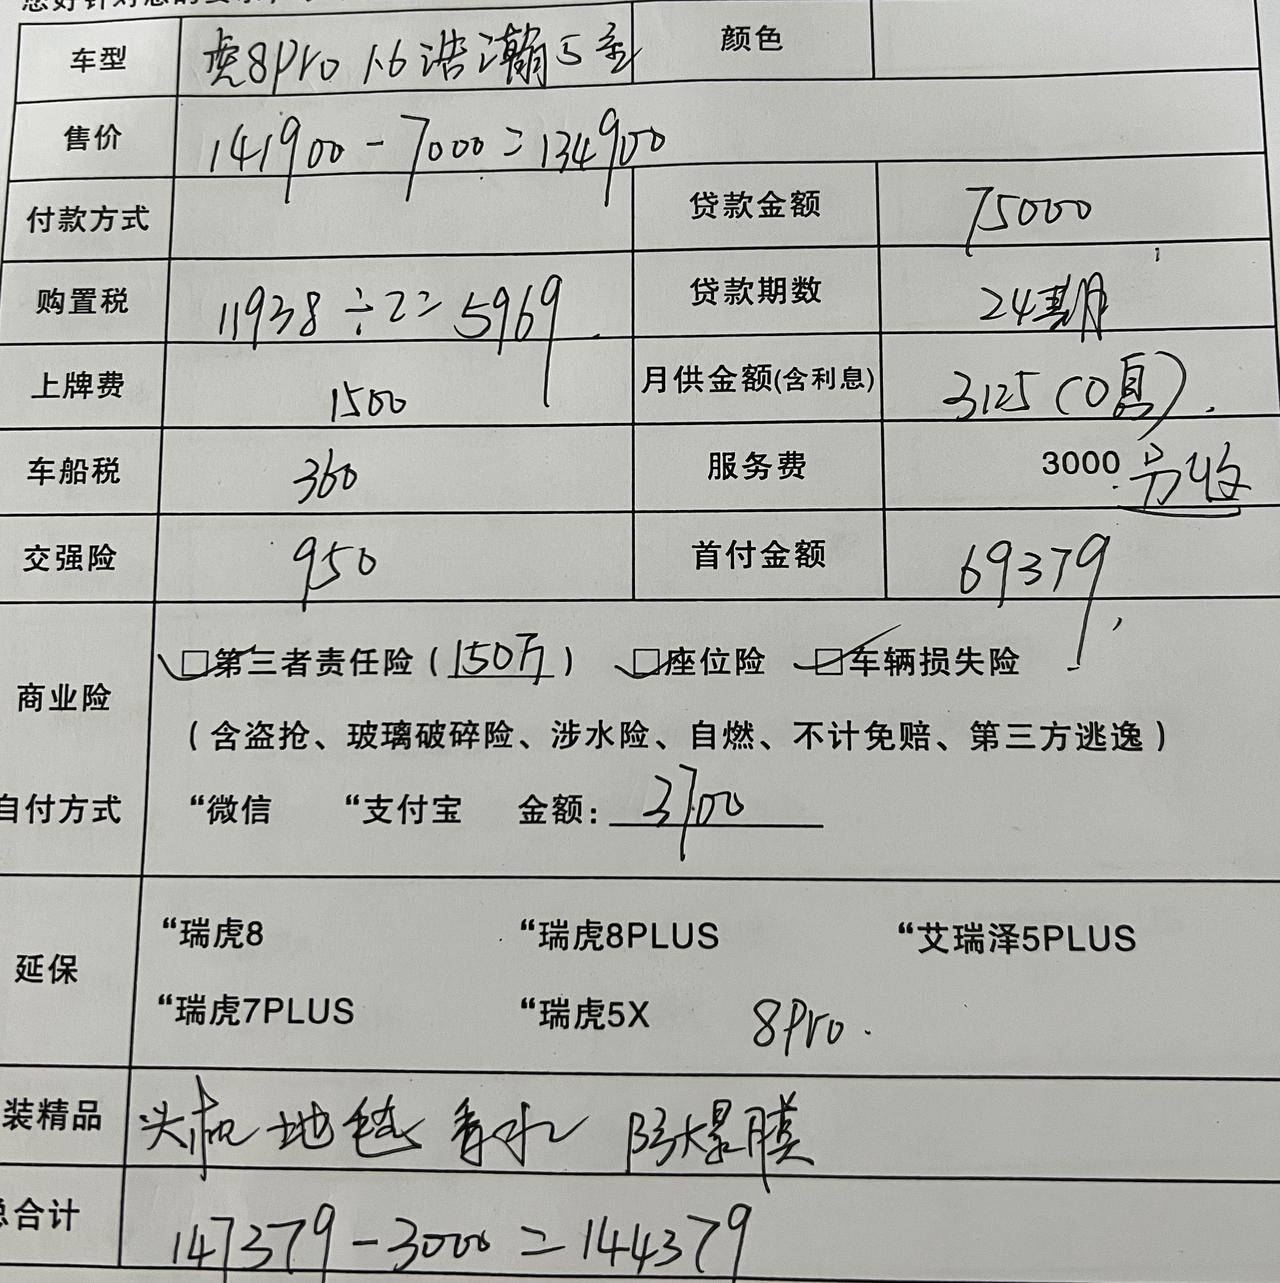 车型 虎8Pro 1.6 浩瀚5座 颜色
售价 141900-7000=134900
付款方式 贷款金额 75000
购置税 11938÷2=5969 贷款期数 24期
上牌费 1500 月供金额(含利息) 3125(0息).
车船税 360 服务费 3000 另收
交强险 950 首付金额 69379
商业险 □第三者责任险(150万) □座位险 □车辆损失险
(含盗抢、玻璃破碎险、涉水险、自燃、不计免赔、第三方逃逸)
自付方式 “微信 “支付宝 金额: 3700
延保 “瑞虎8 “瑞虎8PLUS “艾瑞泽5PLUS
“瑞虎7PLUS “瑞虎5X 8Pro.
装精品 头枕 地毯 香水 防爆膜
总合计 147379-3000=144379